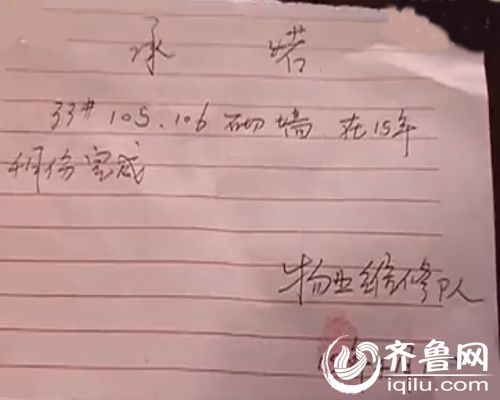 承 诺
33# 105.106 砌墙 在15年
4月份完成
物业维修队
齐鲁网
iqilu.com